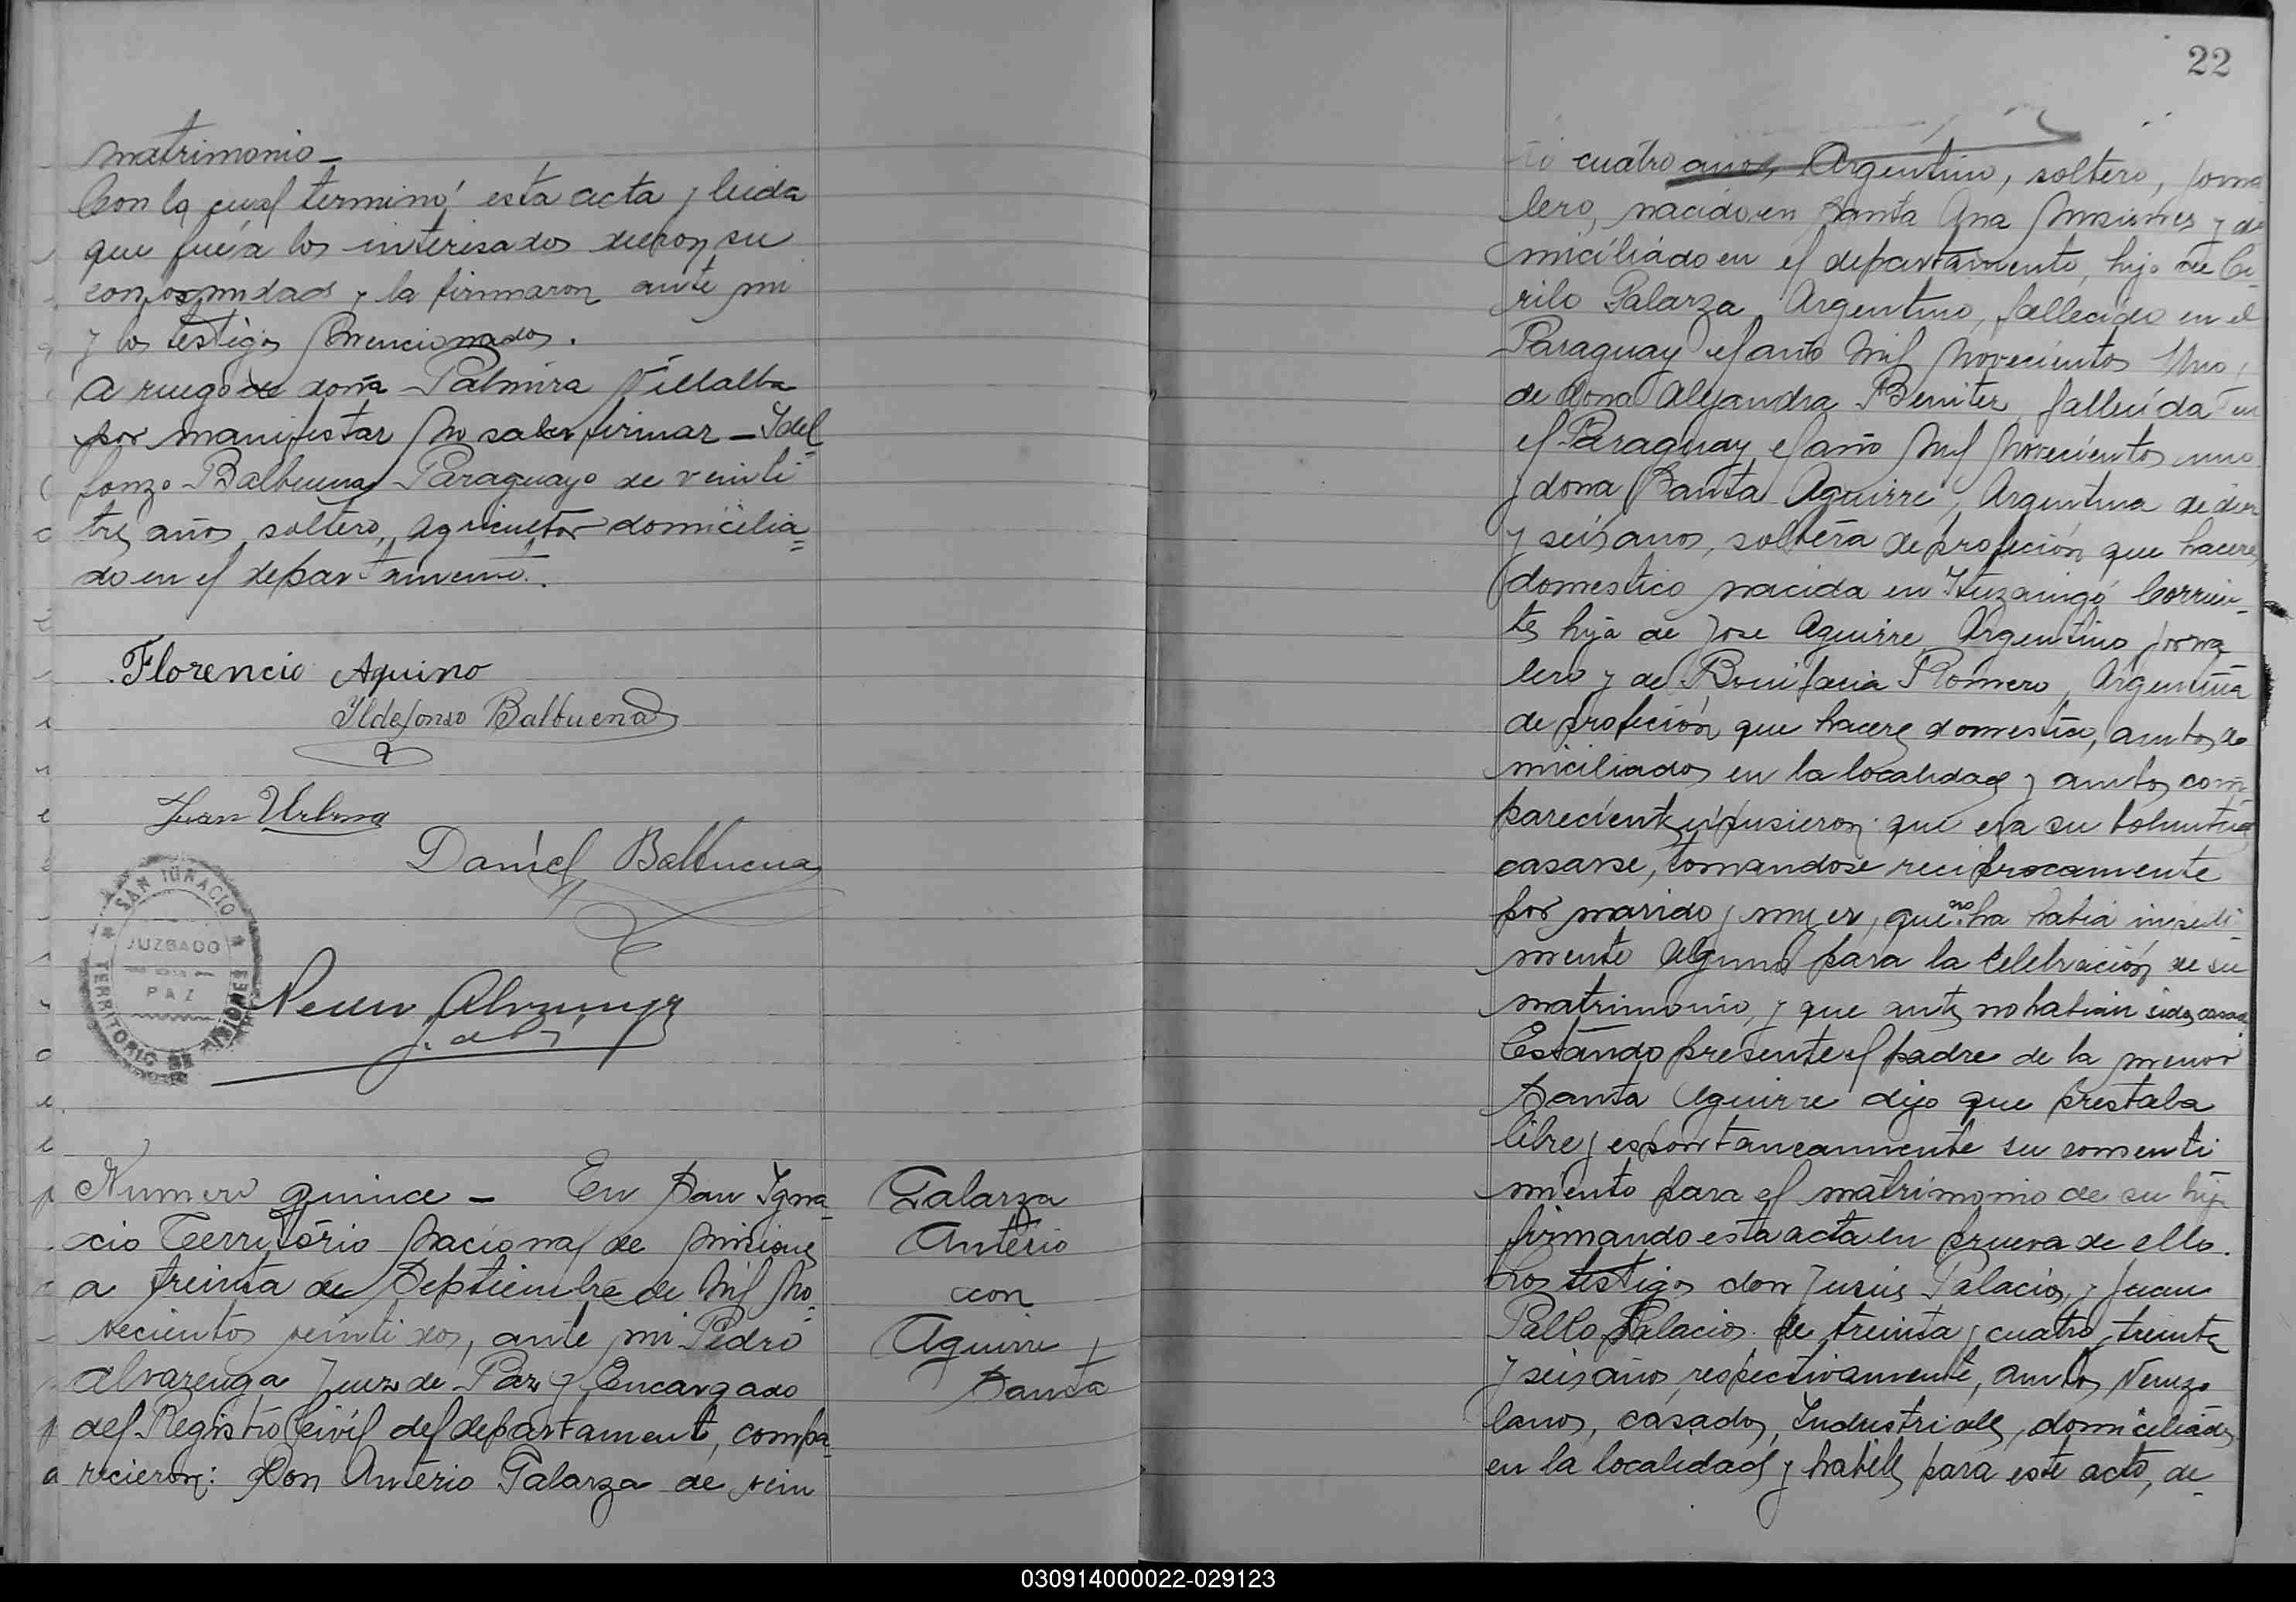 matrimonio_
Con la cual terminó esta acta y leida
que fué a los interisados dieron su
conformidad y la firmaron ante mi
y los testigos mencionados.
A ruego de doña Palmira Villalba
por manifestar no saber firmar - Ydel=
fonzo Balbuena Paraguayo de veinti
tres años, soltero, agricultor domicilia=
do en el departamento.
Florencio Aquino
Yldefonso Balbuena
Juan Urbina
Daniel Balbuena
SAN IGNACIO
JUZGADO
PAZ
TERRITORIO DE MISIONES
J. de Paz
Numero quince - En San Ygna
cio Território Nacional de Misiones
a treinta de Septiembre de Mil No
vecientos veinti dos, ante mi Pedro
Alvarenga Juez de Paz y Encargado
del Registro Civil del departament, compa
recieron: Don Anterio Galarza de vein
Galarza
Anterio
con
Aguirre
Santa
22
ti cuatro años, Argentino, soltero, jorna
lero, nacido en Santa Ana Misiones y do
miciliado en el departamento, hijo de Ci-
rilo Galarza, Argentino, fallecido en el
Paraguay el año Mil Novecientos Uno,
de dona Alejandra Beniter, fallecida en
el Paraguay el año Mil Novecientos uno
y dona Santa Aguirre, Argentina de diez
y seis anos, soltera de profeción que haceres
domestico nacida en Ituzaingó Corrien-
tes hija de Jose Aguirre, Argentino jorna
lero y de Bonifacia Romero, Argentina
de profeción que haceres domestico, ambos do
miciliados en la localidad y ambos com-
parecientes espusieron que era su voluntad
casarse, tomandose reciprocamente
por marido y mujer, que no ha habia inpedi-
mento alguno para la celebración de su
matrimonio, y que antes no habian sidos casad
Estando presente el padre de la menor
Santa Aguirre dijo que prestaba
libre y espontaneamente su consenti
miento para el matrimonio de su hija
firmando esta acta en prueva de ello.
Los testigos don Jesús Palacios, y Juan
Pablo Palacios de treinta y cuatro, treinta
y seis años respectivamente, ambos Venezo
lanos, casados, Industriales, domiciliados
en la localidad y habiles para este acto, de-
030914000022-029123